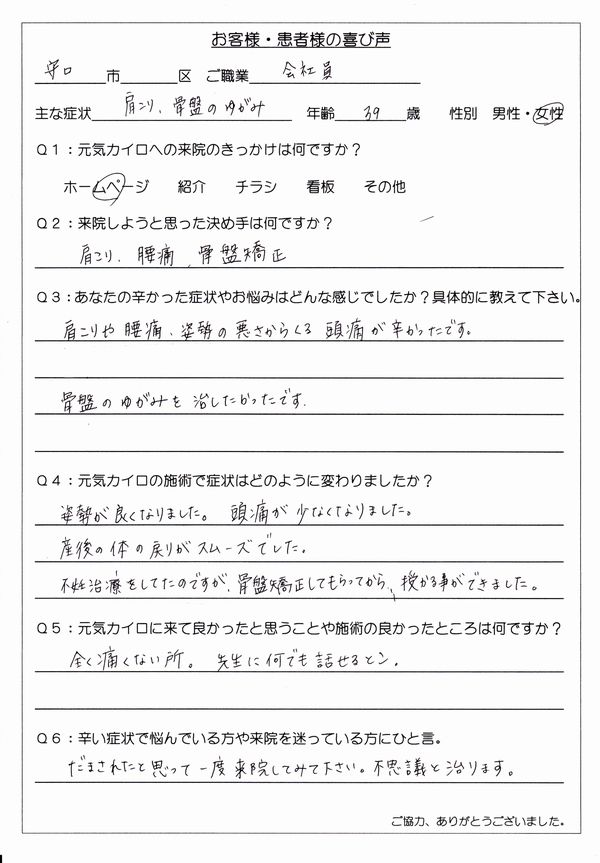 お客様・患者様の喜び声
守口市 区 ご職業 会社員
主な症状 肩こり、骨盤のゆがみ 年齢 39 歳 性別 男性・女性
Q1：元気カイロへの来院のきっかけは何ですか？
ホームページ 紹介 チラシ 看板 その他
Q2：来院しようと思った決め手は何ですか？
肩こり、腰痛、骨盤矯正
Q3：あなたの辛かった症状やお悩みはどんな感じでしたか？具体的に教えて下さい。
肩こりや腰痛、姿勢の悪さからくる頭痛が辛かったです。
骨盤のゆがみを治したかったです.
Q4：元気カイロの施術で症状はどのように変わりましたか？
姿勢が良くなりました。頭痛が少なくなりました。
産後の体の戻りがスムーズでした。
不妊治療をしてたのですが、骨盤矯正してもらってから、授かる事ができました。
Q5：元気カイロに来て良かったと思うことや施術の良かったところは何ですか？
全く痛くない所。先生に何でも話せるとこ.
Q6：辛い症状で悩んでいる方や来院を迷っている方にひと言。
だまされたと思って一度来院してみて下さい。不思議と治ります。
ご協力、ありがとうございました。